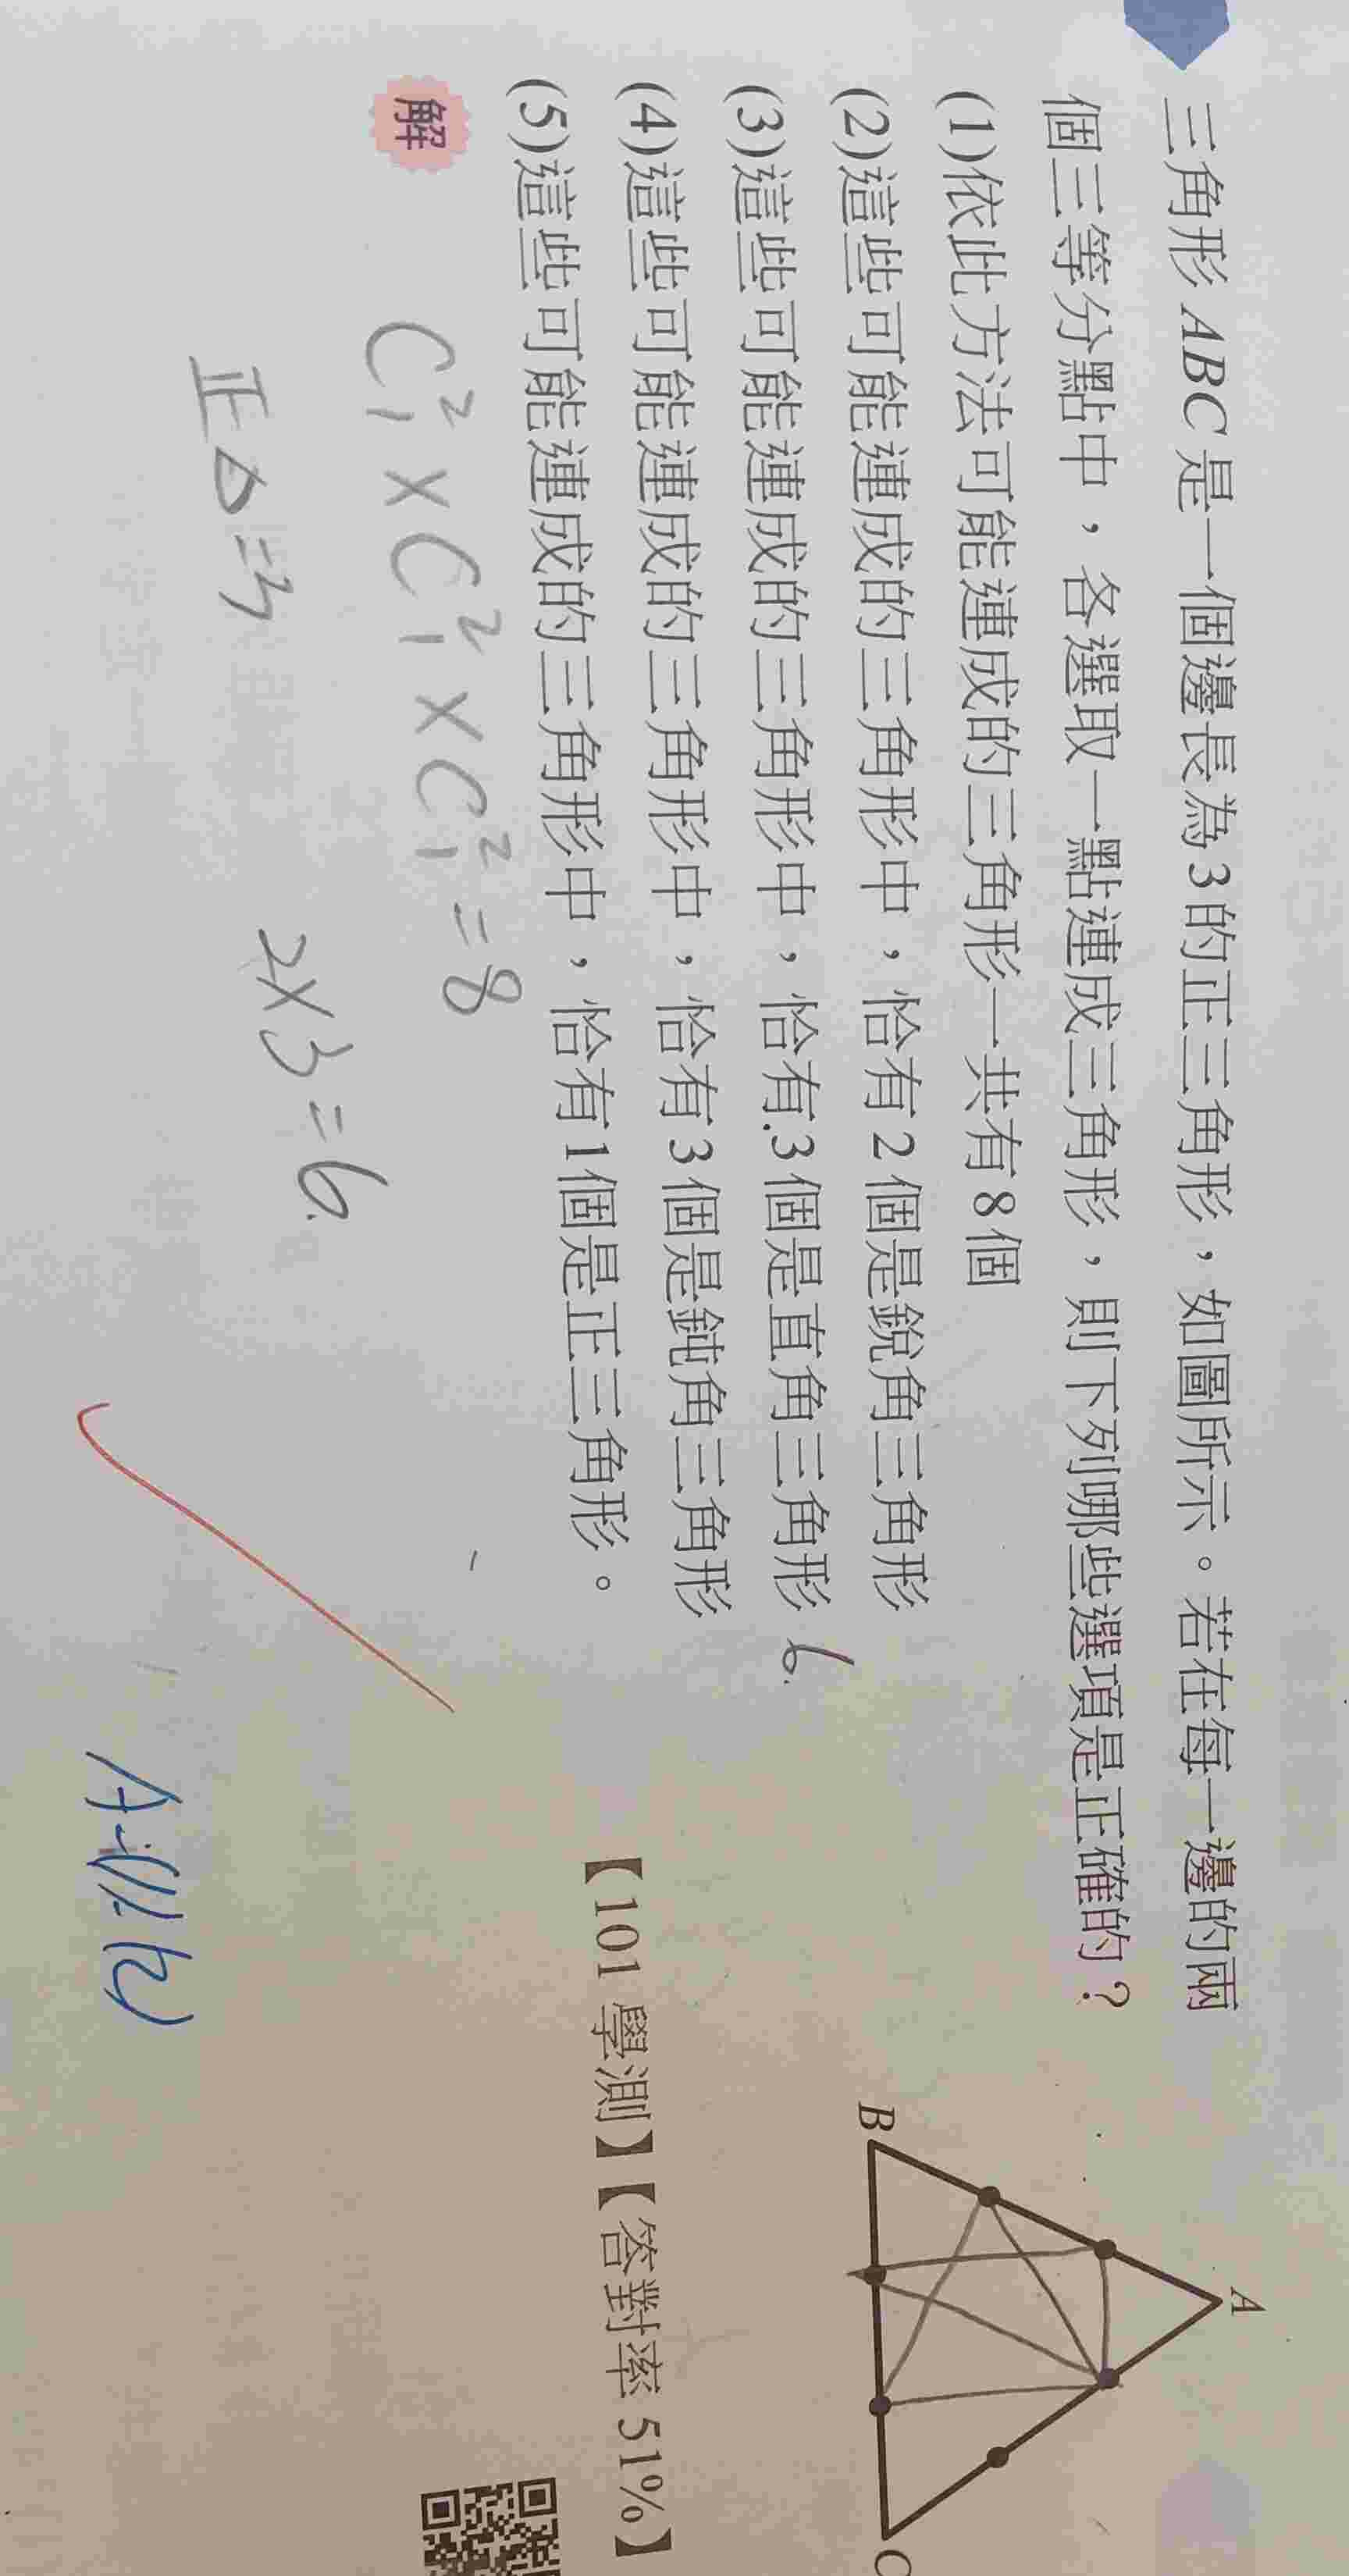 三角形 ABC 是一個邊長為 3 的正三角形，如圖所示。若在每一邊的兩
個三等分點中，各選取一點連成三角形，則下列哪些選項是正確的？
(1)依此方法可能連成的三角形一共有 8 個
(2)這些可能連成的三角形中，恰有 2 個是銳角三角形
(3)這些可能連成的三角形中，恰有 3 個是直角三角形 6.
(4)這些可能連成的三角形中，恰有 3 個是鈍角三角形
(5)這些可能連成的三角形中，恰有 1 個是正三角形。
【101 學測】【答對率 51%】
A
B
C
解
C²₁ × C²₁ × C²₁ = 8
正△=
2×3=6.
A:(1)(2)